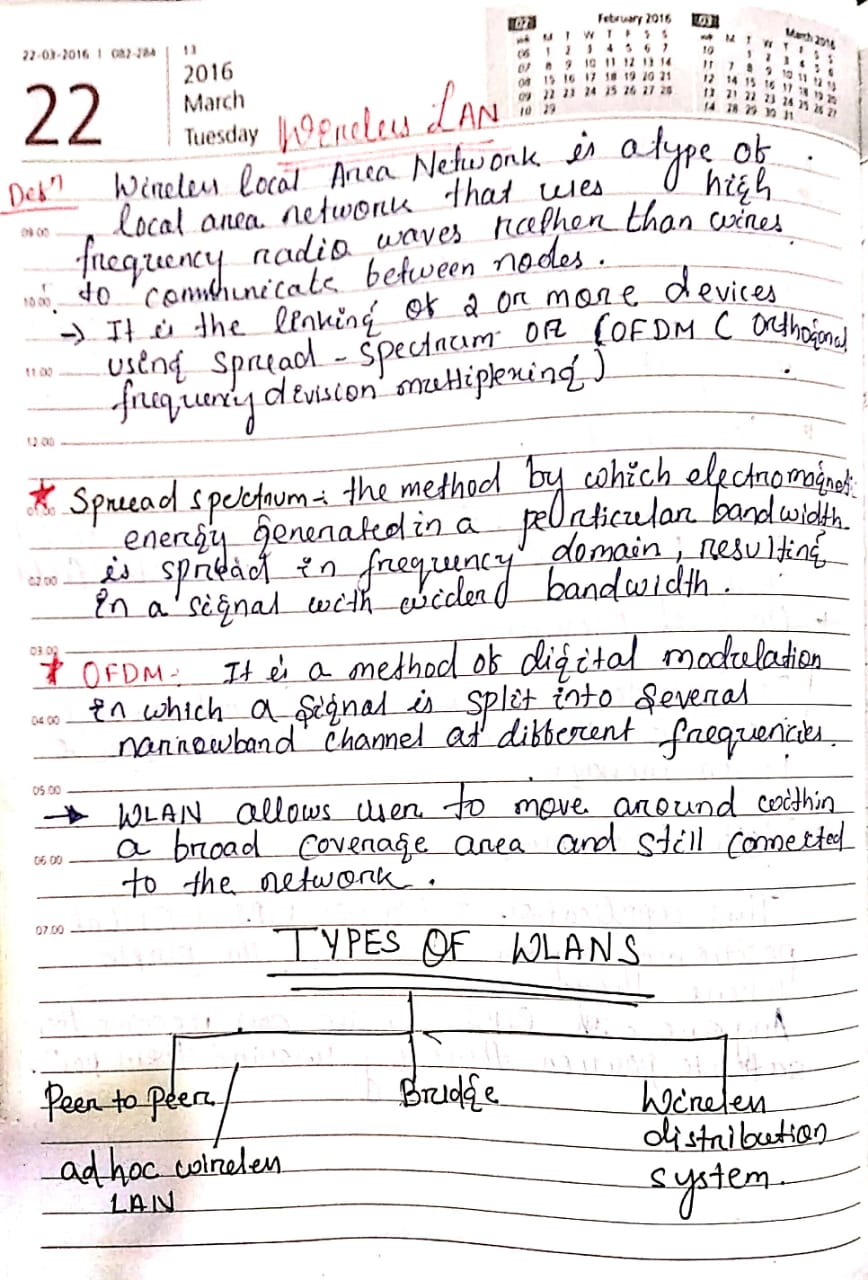 22-03-2016 | 082-284
13
22
2016
March
Tuesday
02 February 2016
wk M T W T F S S
06 1 2 3 4 5 6 7
07 8 9 10 11 12 13 14
08 15 16 17 18 19 20 21
09 22 23 24 25 26 27 28
10 29
03 March 2016
wk M T W T F S S
10 1 2 3 4 5 6
11 7 8 9 10 11 12 13
12 14 15 16 17 18 19 20
13 21 22 23 24 25 26 27
14 28 29 30 31
Wireless LAN
Defn Wireless local Area Network is a type of
local area network that uses high
09.00
frequency radio waves rather than wires
to communicate between nodes.
10.00
→ It is the linking of 2 or more devices
using spread-spectrum or (OFDM ( Orthogonal
11.00
frequency division multiplexing)
12.00
* Spread spectrum:- the method by which electromagnet.
energy generated in a particular bandwidth
is spread in frequency domain, resulting
02.00
in a signal with wider bandwidth.
03.00
* OFDM- It is a method of digital modulation
in which a signal is split into several
04.00
narrowband channel at different frequencies.
05.00
→ WLAN allows user to move around within
a broad coverage area and still connected
06.00
to the network.
07.00
TYPES OF WLANS
Peer to peer /
ad hoc wireless
LAN
Bridge
Wireless
distribution
system.